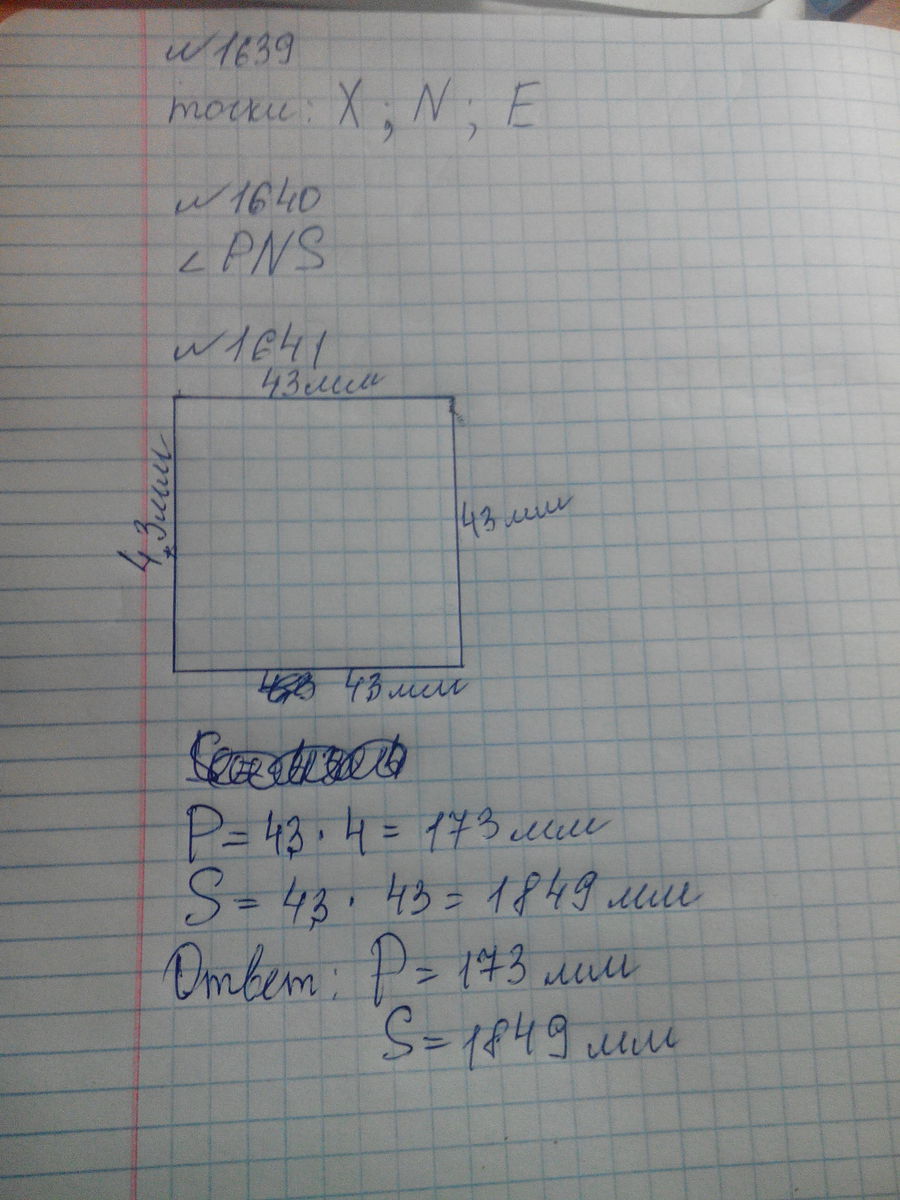 №1639
точки: X ; N ; E
№1640
∠ PNS
№1641
43мм
43мм
43мм
43мм
P = 43 · 4 = 173 мм
S = 43 · 43 = 1849 мм
Ответ: P = 173 мм
S = 1849 мм